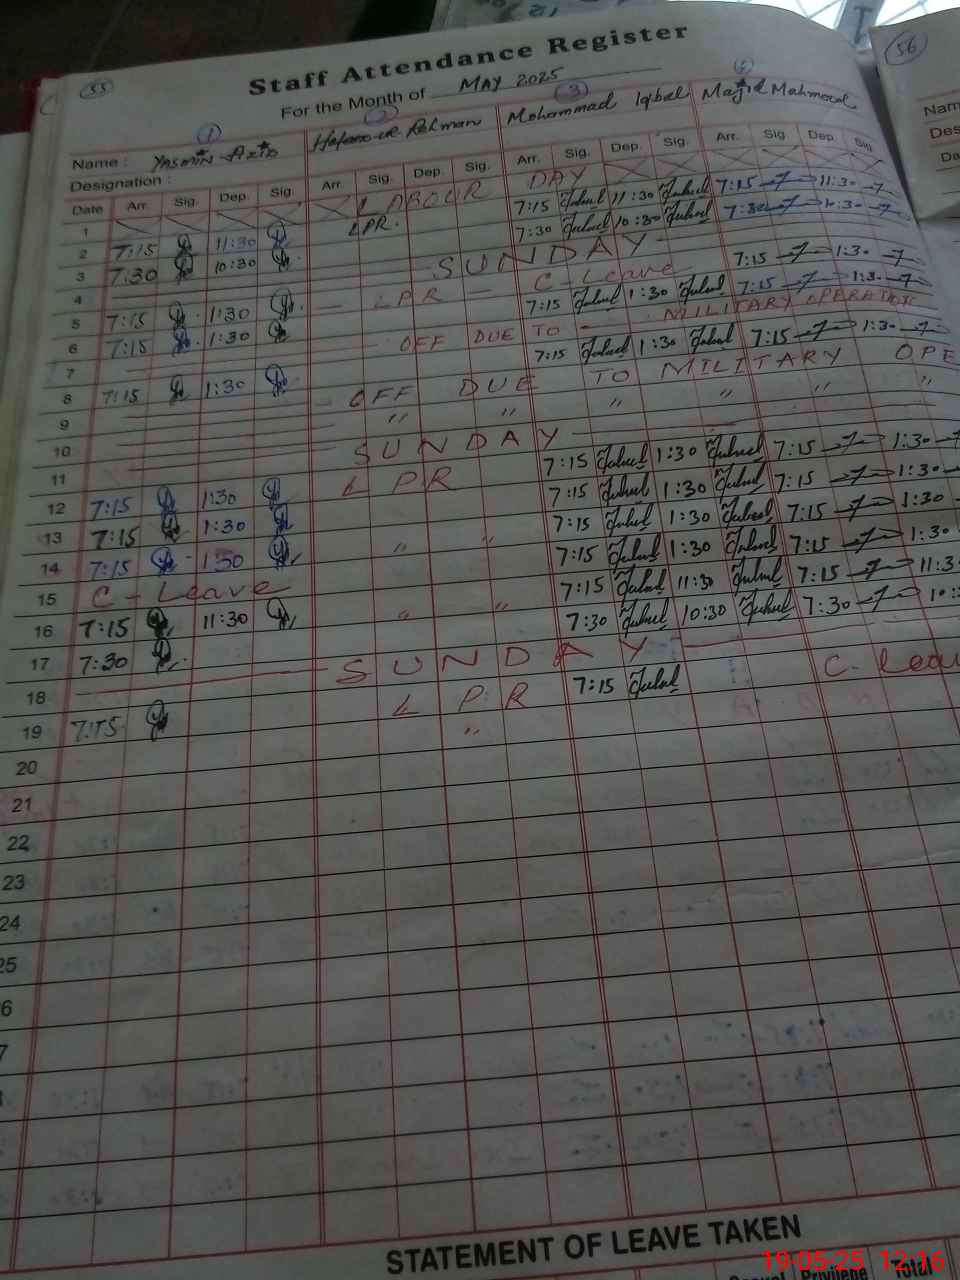 55
56
Staff Attendance Register
For the Month of MAY 2025
1 2 3
Name : Yasmin Azib Rehman Mohammad Iqbal Majid Mahmood
Designation :
Date Arr. Sig. Dep. Sig. Arr. Sig. Dep. Sig. Arr. Sig. Dep. Sig. Arr. Sig Dep. Sig.
1 LABOUR DAY
2 7:15 11:30 LPR. 7:15 11:30 7:15 11:30
3 7:30 10:30 7:30 10:30 7:30 10:30
4 SUNDAY
5 7:15 1:30 LPR C-Leave 7:15 1:30
6 7:15 1:30 7:15 1:30 7:15 1:30
7 OFF DUE TO MILITARY OPERATION
8 7:15 1:30 7:15 1:30 7:15 1:30
9 OFF DUE TO MILITARY OPE
10 " " " " " "
11 SUNDAY
12 7:15 1:30 LPR 7:15 1:30 7:15 1:30
13 7:15 1:30 7:15 1:30 7:15 1:30
14 7:15 1:30 " " 7:15 1:30 7:15 1:30
15 C-Leave 7:15 1:30 7:15 1:30
16 7:15 11:30 " " 7:15 11:30 7:15 11:3
17 7:30 7:30 10:30 7:30 10:
18 SUNDAY
19 7:15 LPR 7:15 C-Leav
20 "
21
22
23
24
25
6
7
STATEMENT OF LEAVE TAKEN
Privilege Total
19-05-25 12:16
Nam
Des
Da